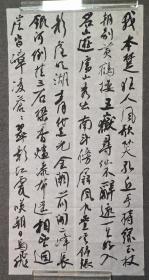 我本楚狂人鳳歌笑孔丘手持綠玉杖
朝別黃鶴樓五嶽尋仙不辭遠一生好入
名山遊廬山秀出南斗傍屏風九疊雲錦張
影落明湖青黛光金闕前開二峰長
銀河倒挂三石梁香爐瀑布遥相望迴
崖沓嶂凌蒼蒼翠影紅霞映朝日鳥飛